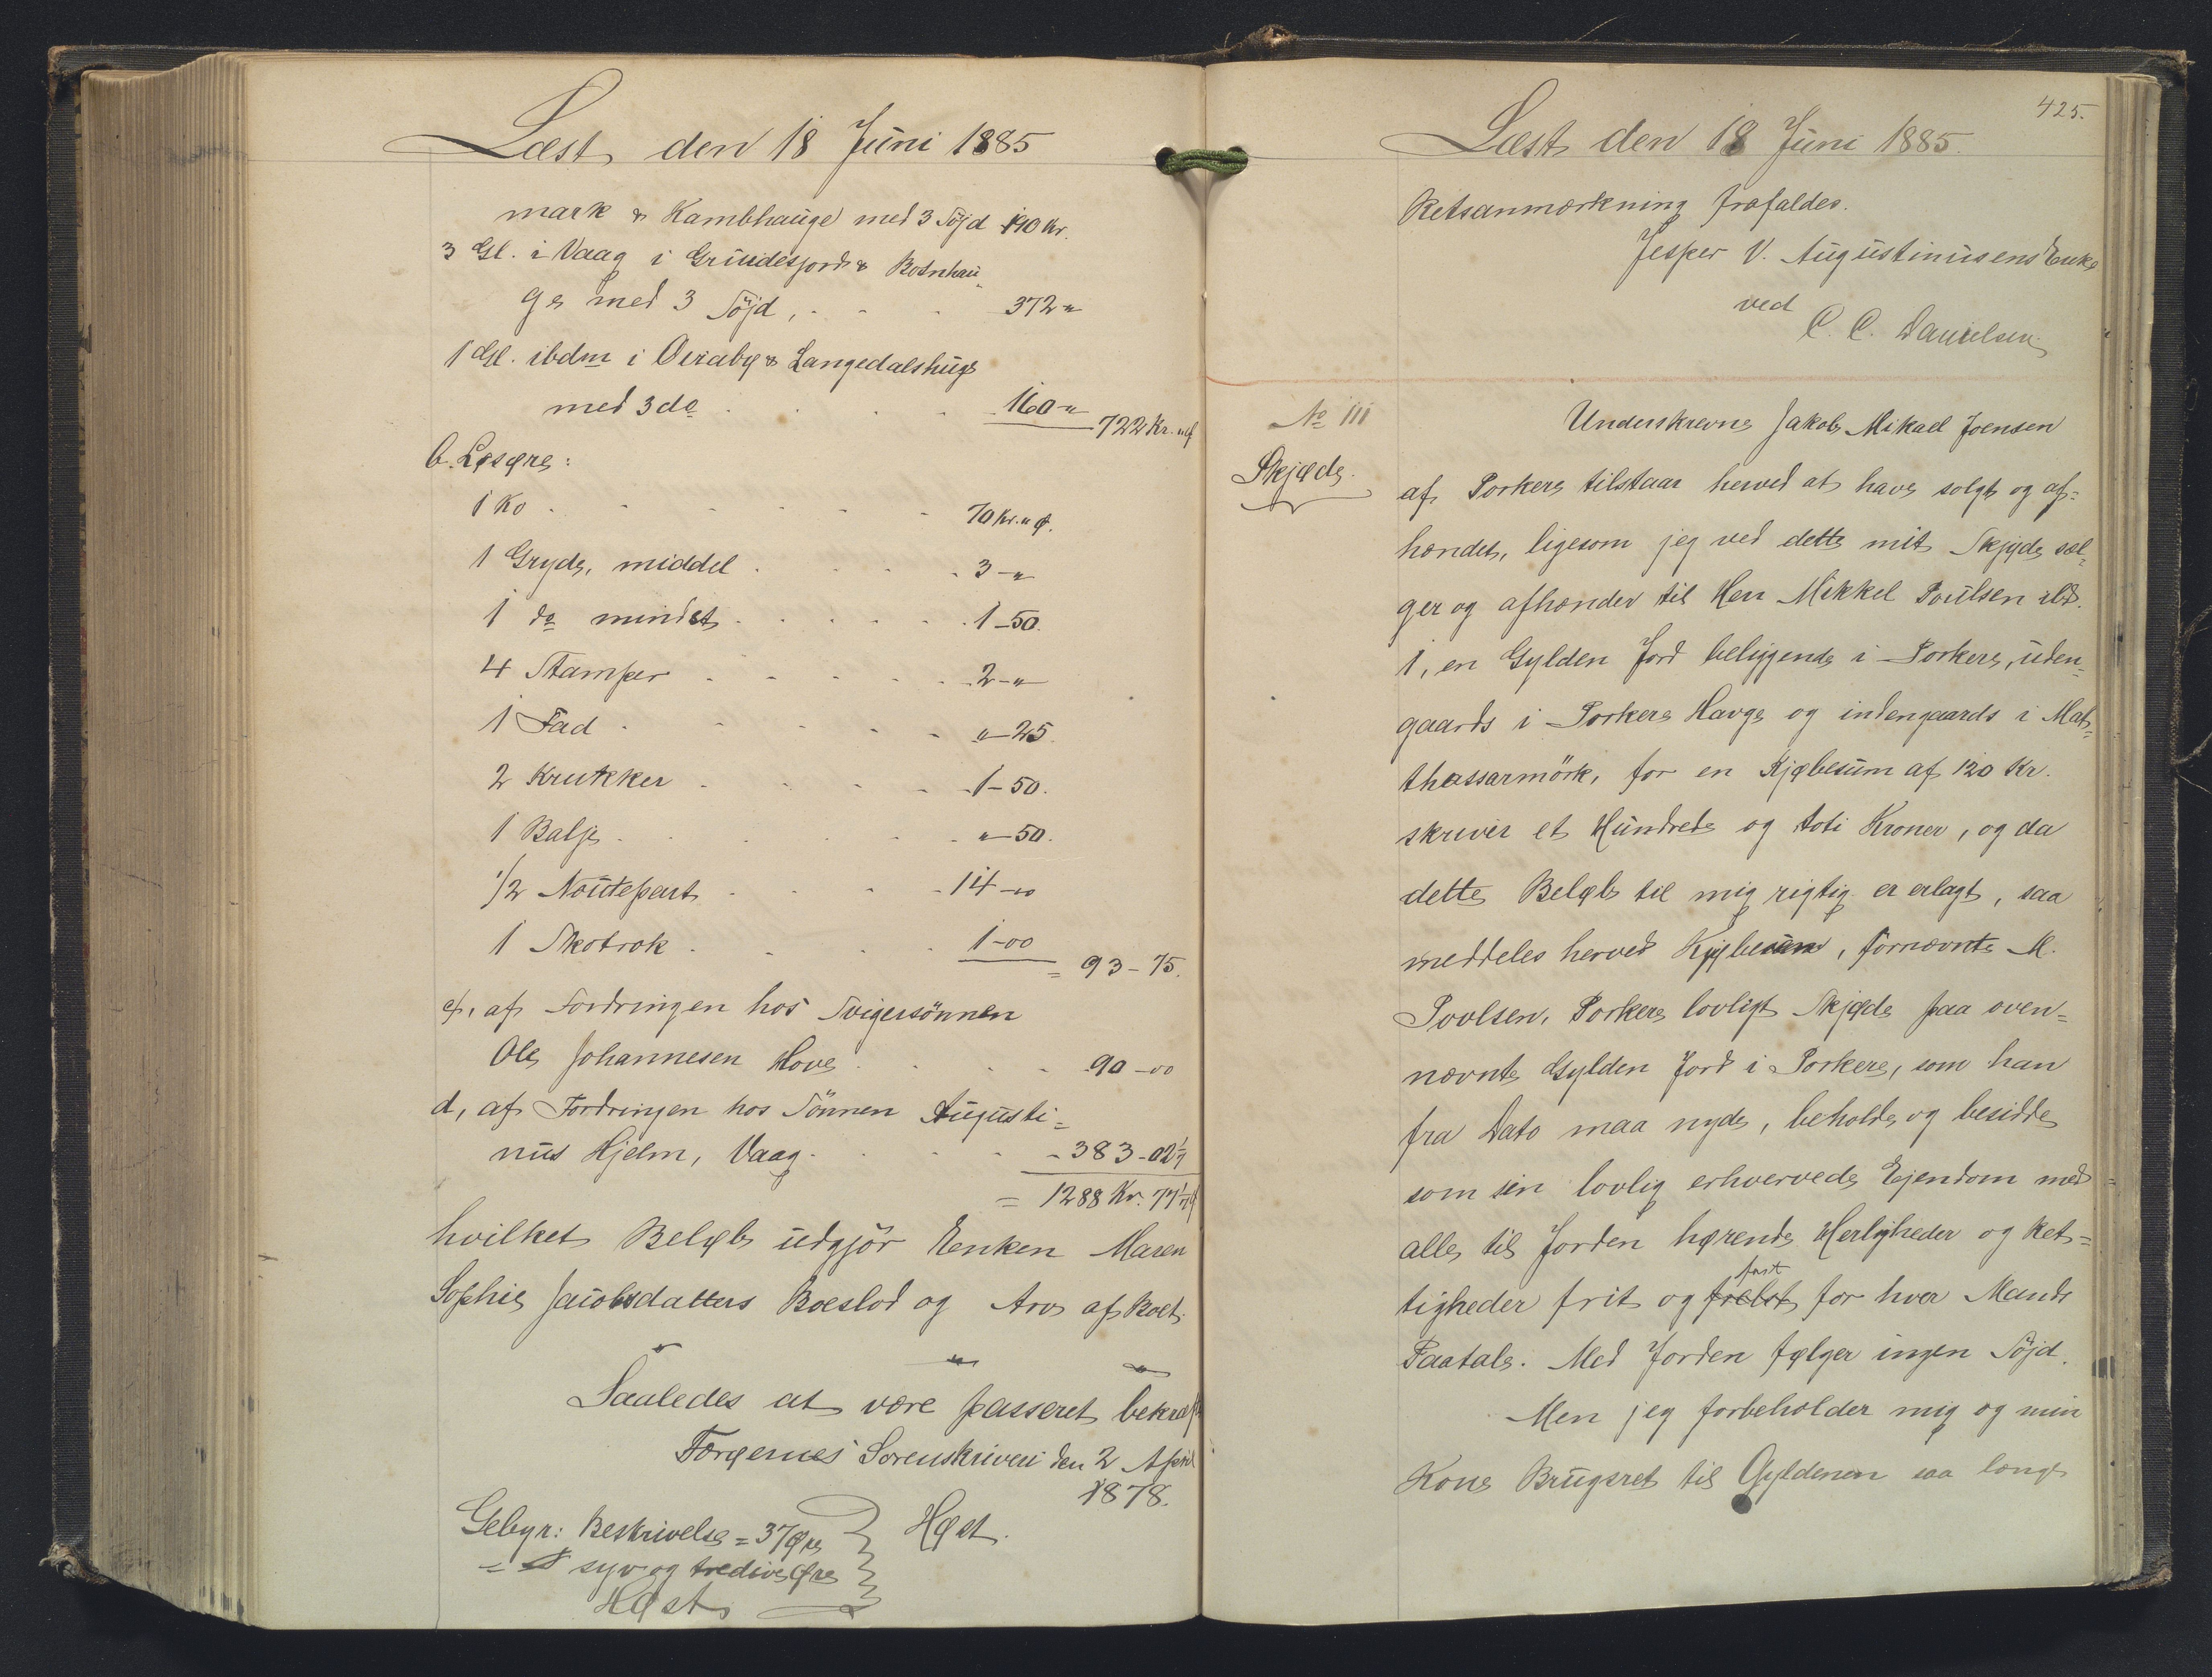 Læst den 18 Juni 1885
mark & Kambhauge med 3 Söjd 190 Kr.
3 Gl. i Vaag i Grindesjord & Botnhau„
ge med 3 Söjd, . . . 372 - „
1 Gl. ibdm i Oiraby & Langedalshuge
med 3 do . . . . 160 - „
722 Kr. „ Ø
b. Løsøre:
1 Ko . . . . . 70 Kr. „ Ø.
1 Gryde, middel . . . . 3 - „
1 do mindst . . . . . 1 - 50.
4 Stamper . . . . . 2 - „
1 Fad . . . . . „ - 25.
2 Krukker . . . . . 1 - 50.
1 Balje . . . . . „ - 50.
1/2 Noutepart . . . . 14 - 00
1 Skotrok . . . . 1 - 00
= 93 - 75.
c, af Fordringen hos Svigersönnen
Ole Johannesen Hove . . . . 90 - 00
d, af Fordringen hos Sönnen Augusti=
nus Hjelm, Vaag . . . . 383 - 02 1/7
= 1288 Kr. 77 1/7 Ø
hvilket Beløb udgjør Enken Maren
Sophie Jacobsdatters Boeslod og Arv af Boet.
„ „ „
Saaledes at være passeret bekræft
Færøernes Sorenskriveri den 2 April
1878.
Gebyr: Beskrivelse = 37 Øre
= syv og tredive Øre
Høst.
Høst
425.
Læst den 18 Juni 1885.
Retsanmærkning frafaldes.
Jesper V. Augustinusens Enke
ved
C. C. Danielsen
No 111
Skjøde.
Underskrevne Jakob Mikael Joensen
af Porkere tilstaar herved at have solgt og af=
hændet, ligesom jeg ved dette mit Skjøde sæl„
ger og afhænder til Herr Mikkel Poulsen ibd.
1, en Gylden Jord beliggende i Porkere, uden„
gaards i Porkere Hauge og indengaards i Mat„
thassarmörk, for en Kjøbesum af 120 Kr.
skriver et Hundrede og toti Kroner, og da
dette Beløb til mig rigtig er erlagt, saa
meddeles herved Kjøberen, fornævnte M.
Povlsen, Porkere lovligt Skjøde paa oven=
nævnte Gylden Jord i Porkere, som han
fra Dato maa nyde, beholde og besidde
som sin lovlig erhvervede Ejendom med
alle til Jorden hørende Herligheder og Ret=
tigheder frit og frelst fast for hver Mands
Paatale. Med Jorden følger ingen Söjd.
Men jeg forbeholder mig og min
Kone Brugsret til Gyldenen saa længe